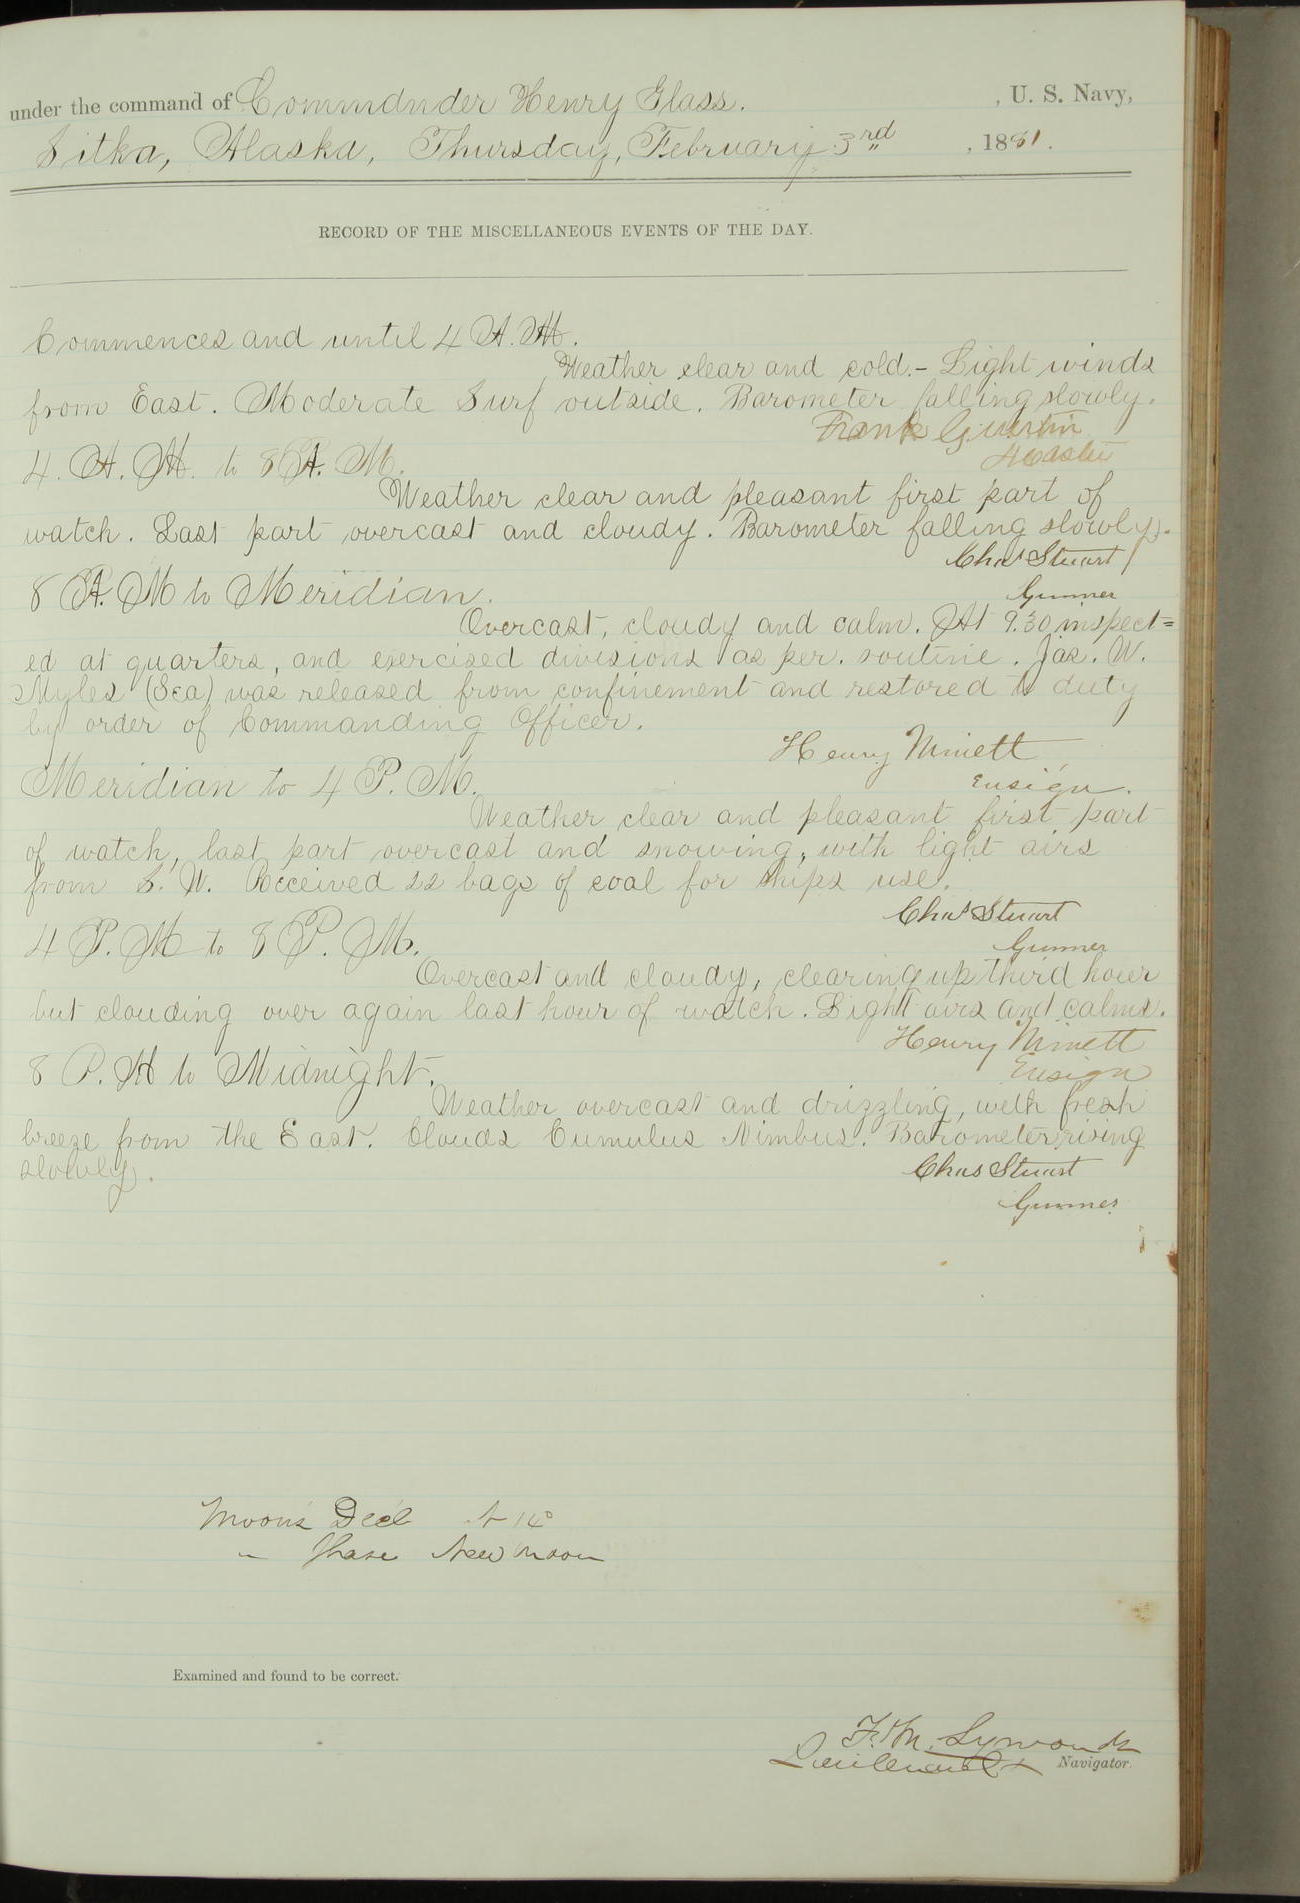 under the command of Commander Henry Glass. , U. S. Navy,
Sitka, Alaska, Thursday, February 3rd , 1881.
RECORD OF THE MISCELLANEOUS EVENTS OF THE DAY.
Commences and until 4 A.M.
Weather clear and cold.- Light winds
from East. Moderate Surf outside. Barometer falling slowly.
Frank Guertin
Master
4. A. M. to 8 A. M.
Weather clear and pleasant first part of
watch. Last part overcast and cloudy. Barometer falling slowly.
Chas Stuart
Gunner
8 A. M to Meridian.
Overcast, cloudy and calm. At 9.30 inspect=
ed at quarters, and exercised divisions as per. routine. Jas. W.
Myles (Sea) was released from confinement and restored to duty
by order of Commanding Officer.
Henry Minett
Ensign.
Meridian to 4 P. M.
Weather clear and pleasant first part
of watch, last part overcast and snowing, with light airs
from S. W. Received 22 bags of coal for ships use.
Chas Stuart
Gunner
4 P. M to 8 P. M.
Overcast and cloudy, clearing up third hour
but clouding over again last hour of watch. Light airs and calms.
Henry Minett
Ensign
8 P. M to Midnight.
Weather overcast and drizzling, with fresh
breeze from the East. Clouds Cumulus Nimbus. Barometer rising
slowly.
Chas Stuart
Gunner
Moon's Decl N 14°
" Phase New Moon
Examined and found to be correct.
F. M. Symonds
Lieutenant & Navigator.